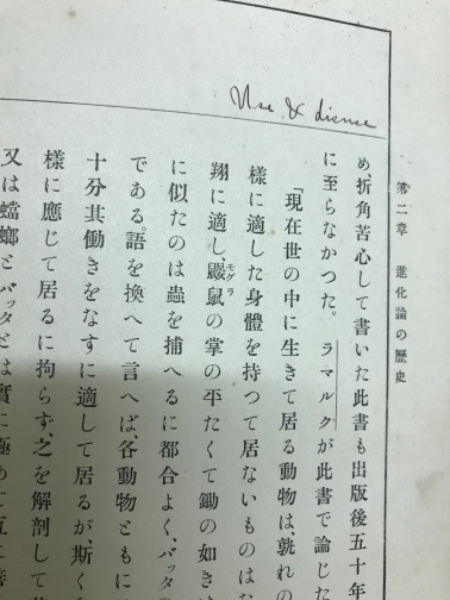 Use & disuse
第二章 進化論の歴史
め、折角苦心して書いた此書も出版後五十年
に至らなかつた。ラマルクが此書で論じた
「現在世の中に生きて居る動物は、孰れの
様に適した身體を持つて居ないものはな
翔に適し、鼹鼠の掌の平たくて鋤の如きは
モグラ
に似たのは蟲を捕へるに都合よく、バッタの
である。語を換へて言へば、各動物ともに
十分其働きをなすに適して居るが、斯く
様に應じて居るに拘らず、之を解剖して
又は蟷螂とバッタとは實に極めて互に